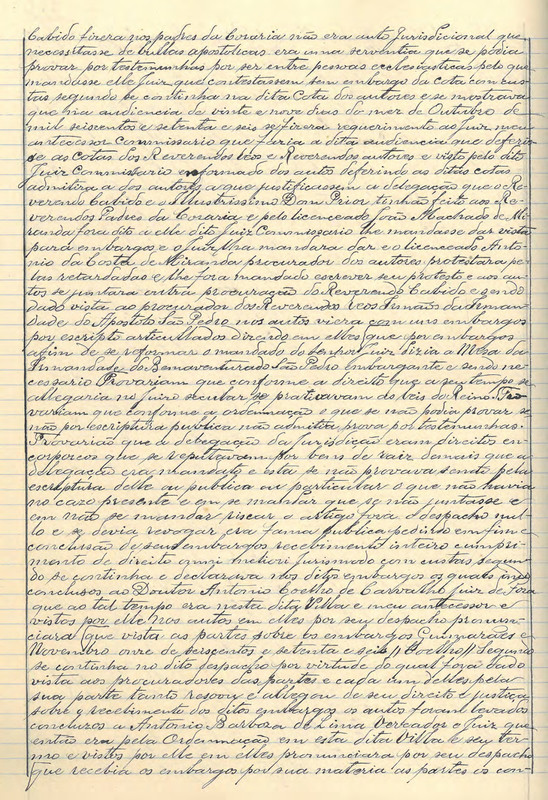 Cabido fizera nos padres da Coraria não era auto Jurisdicional que
necessitasse de bullas apostolicas era uma serventia que se podia
provar por testemunhas por ser entre pessoas ecclesiasticas pelo que
mandasse elle Juiz que contestassem sem embargo da cota com cus-
tas segundo se continha na dita Cota dos autores e se mostrava
que na audiencia de vinte e nove dias do mez de Outubro de
mil seiscentos e setenta e seis se fizera requerimento ao juiz meu
antecessor Commissario que fazia a dita audiencia que deferis-
se as cotas dos Reverendos réos e Reverendos autores e visto pelo dito
Juiz Commissario enformado dos autos deferindo as ditas cotas
admitira a dos autores a que justificassem a delegação que o Re-
verendo Cabido e o Illustrissimo Dom Prior tinhão feito aos Re-
verendos Padres da Coraria e pelo licenceado João Machado de Mi-
randa fora dito a elle dito Juiz Commissario lhe mandasse dar vista
para embargos e o Juiz lha mandara dar e o licenceado Anto-
nio da Costa de Miranda procurador dos autores protestara pe-
las retardadas e lhe fora mandado escrever seu protesto e aos au-
tos se juntara outra procuração do Reverendo Cabido e sendo
dado vista ao procurador dos Reverendos reos Irmãos da Irman-
dade do Apostolo São Pedro nos autos viera com uns embargos
por escripto articullados dizendo em elles que por embargos
afim de se reformar o mandado do senhor Juiz dizia a Mesa da
Irmandade do Benaventurado São Pedro Embargante e sendo ne-
cessario Provariam que conforme a direito que a seu tempo se
allegaria no Juizo secular se praticavam as leis do Reino. Pro-
variam que conforme a ordennação o que se não podia provar se-
não por escriptura publica não admitia prova por testemunhas.
Provarião que a delegação da Jurisdição eram direitos en-
corporeos que se reputavam por bens de raiz demais que a
delegação era mandato e esta se não provava senão pela
escriptura delle ou publica ou particular o que não havia
no cazo presente e em se mandar que se não juntasse e
em não se mandar riscar o artigo fora o despacho nul-
lo e se devia revogar era fama publica pedindo em fim e
conclusão de seus embargos recebimento inteiro cumpri-
mento de direito omni meliori juris modo com custas segun-
do se continha e declarava nos ditos embargos os quais
conclusos ao Doutor Antonio Coelho de Carvalho Juiz de Fora
que ao tal tempo era nesta dita Villa e meu antecessor e
vistos por elle nos autos em elles por seu despacho pronun-
ciara (que vista as partes sobre os embargos Guimarães e
Novembro onze de seiscentos e setenta e seis // Coelho // Segundo
se continha no dito despacho por virtude do qual fora dado
vista aos procuradores das partes e cada um delles pela
sua parte tanto resoou e allegou de seu direito e justiça
sobre o recebimento dos ditos embargos os autos foram levados
concluzos a Antonio Barboza de Lima Vereador e Juiz que
então era pela Ordennação em esta dita Villa e seu ter-
mo e vistos por elle em elles pronunciara por seu despacho
(que recebia os embargos por sua materia as partes os con-